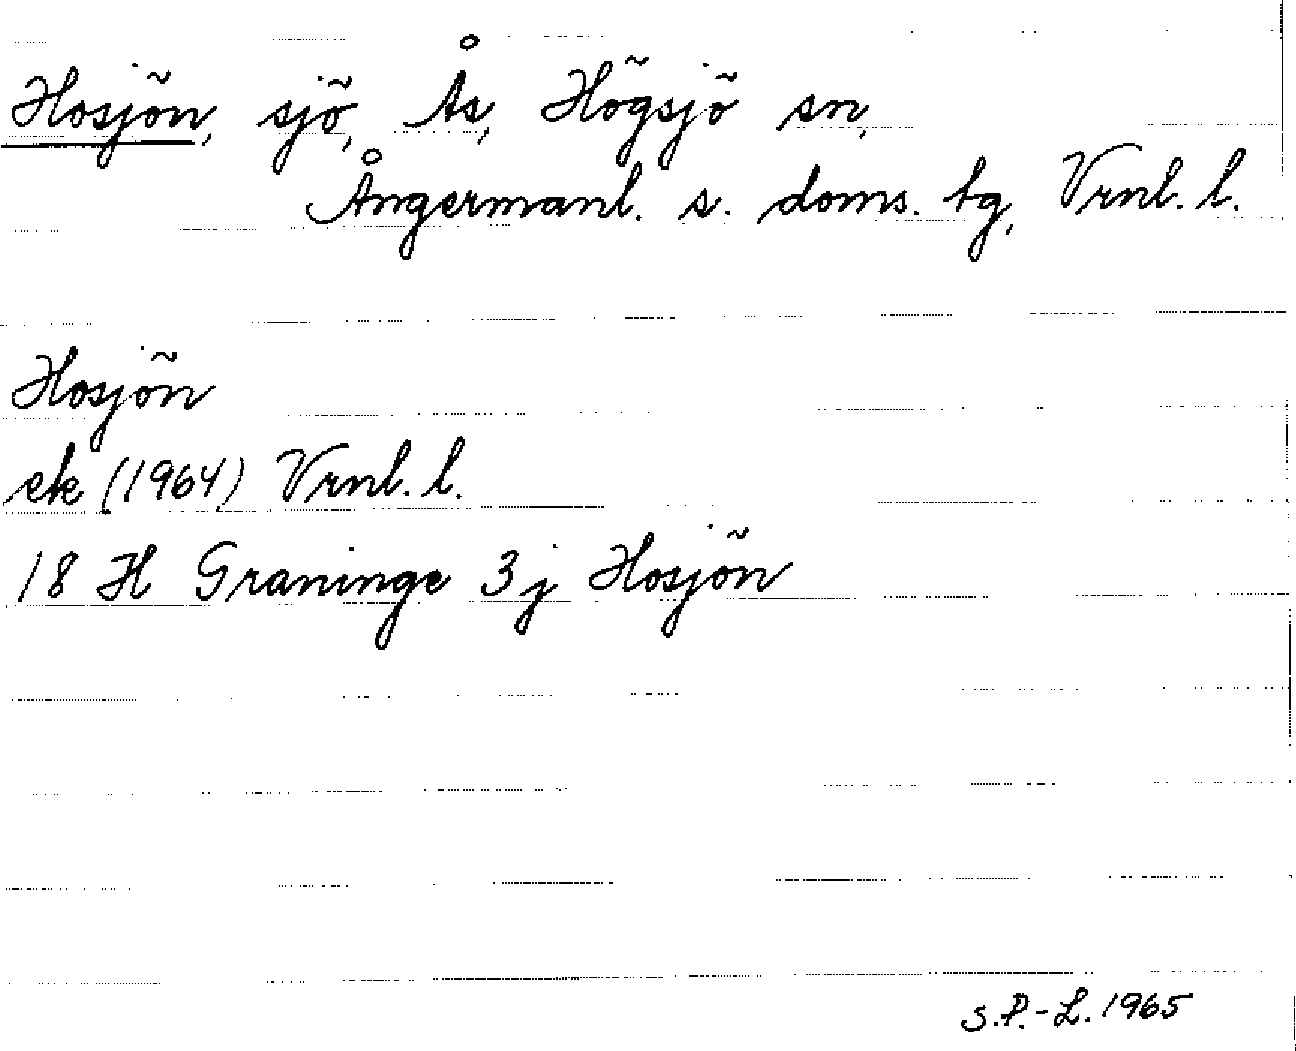 Hosjön, sjö, Ås, Högsjö sn,
Ångermanl. s. doms. tg, Vrnl. l.
Hosjön
ek (1964) Vrnl. l.
18 H Graninge 3j Hosjön
S.P.-L. 1965